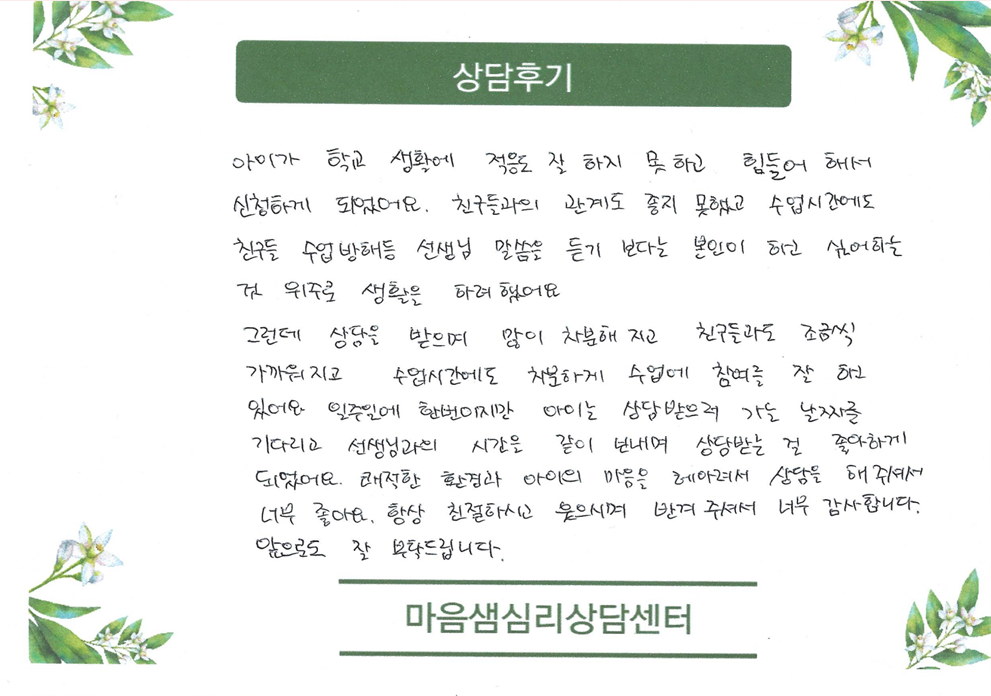 상담후기
아이가 학교 생활에 적응도 잘 하지 못 하고 힘들어 해서
신청하게 되었어요. 친구들과의 관계도 좋지 못했고 수업시간에도
친구들 수업방해등 선생님 말씀을 듣기 보다는 본인이 하고 싶어하는
것 위주로 생활을 하려 했어요
그런데 상담을 받으며 많이 차분해 지고 친구들과도 조금씩
가까워지고 수업시간에도 차분하게 수업에 참여를 잘 하고
있어요 일주일에 한번이지만 아이는 상담받으러 가는 날짜를
기다리고 선생님과의 시간을 같이 보내며 상담받는 걸 좋아하게
되었어요. 쾌적한 환경과 아이의 마음을 헤아려서 상담을 해 주셔서
너무 좋아요. 항상 친절하시고 웃으시며 반겨 주셔서 너무 감사합니다.
앞으로도 잘 부탁드립니다.
마음샘심리상담센터